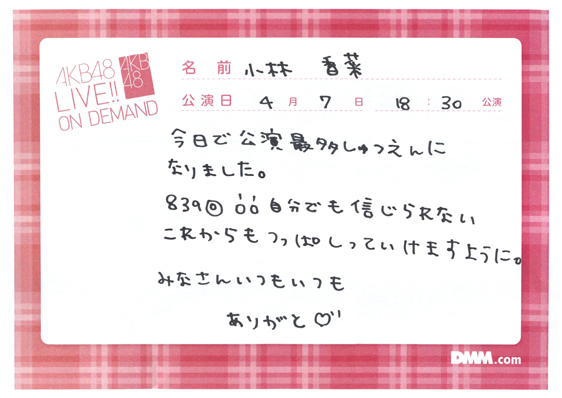 AKB48
LIVE!!
ON DEMAND
AKB
48
名 前 小林 香菜
公演日 4 月 7 日 18 : 30 公演
今日で公演最多しゅつえんに
なりました。
839回 !! 自分でも信じられない
これからもつっぱしっていけますように。
みなさんいつもいつも
ありがと♡
DMM.com